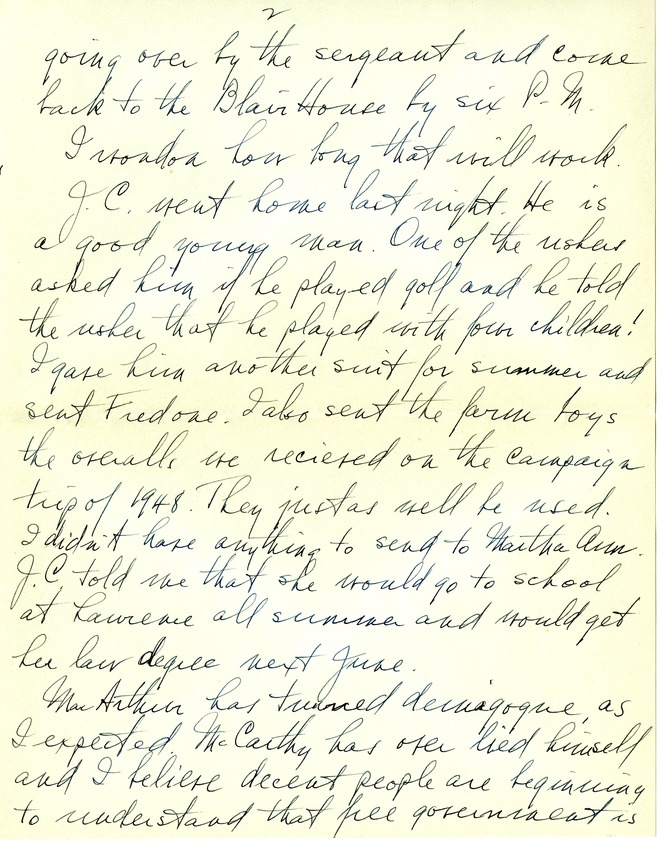 2
going over by the sergeant and come
back to the Blair House by six P.M.
I wonder how long that will work.
J.C. went home last night. He is
a good young man. One of the ushers
asked him if he played golf and he told
the usher that he played with four children!
I gave him another suit for summer and
sent Fred one. I also sent the farm boys
the overalls we recieved on the campaign
trip of 1948. They just as well be used.
I didn't have anything to send to Martha Ann.
J.C. told me that she would go to school
at Lawrence all summer and would get
her law degree next June.
MacArthur has turned demagogue, as
I expected. McCarthy has over lied himself
and I believe decent people are beginning
to understand that free government is